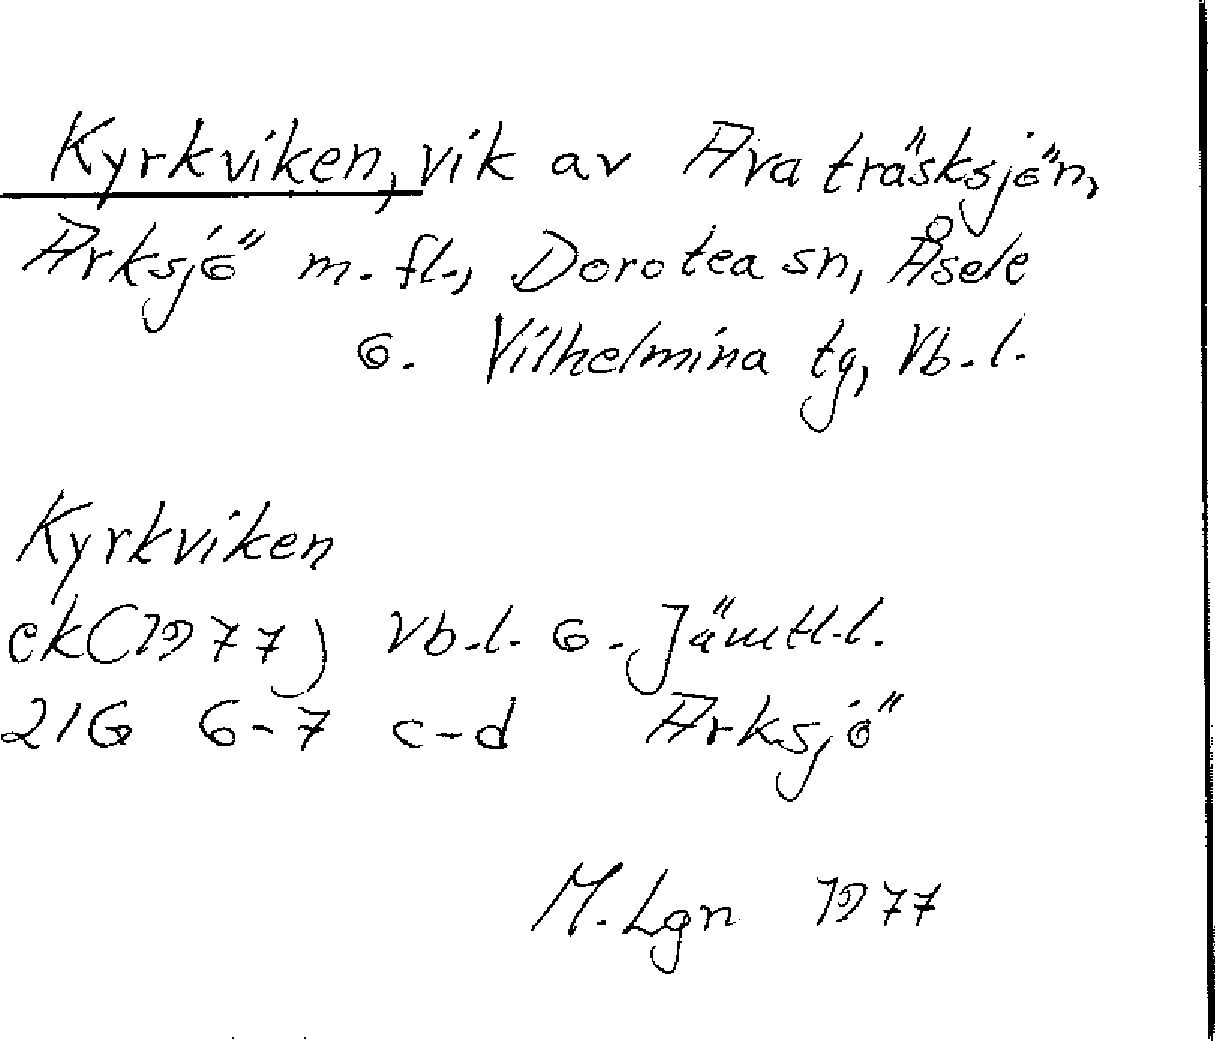 Kyrkviken, vik av Avaträsksjön,
Arksjö m. fl., Dorotea sn, Åsele
o. Vilhelmina tg, Vb.l.
Kyrkviken
ek(1977) Vb.l. o. Jämtl.l.
21G 6-7 c-d Arksjö
M. Lgn 1977